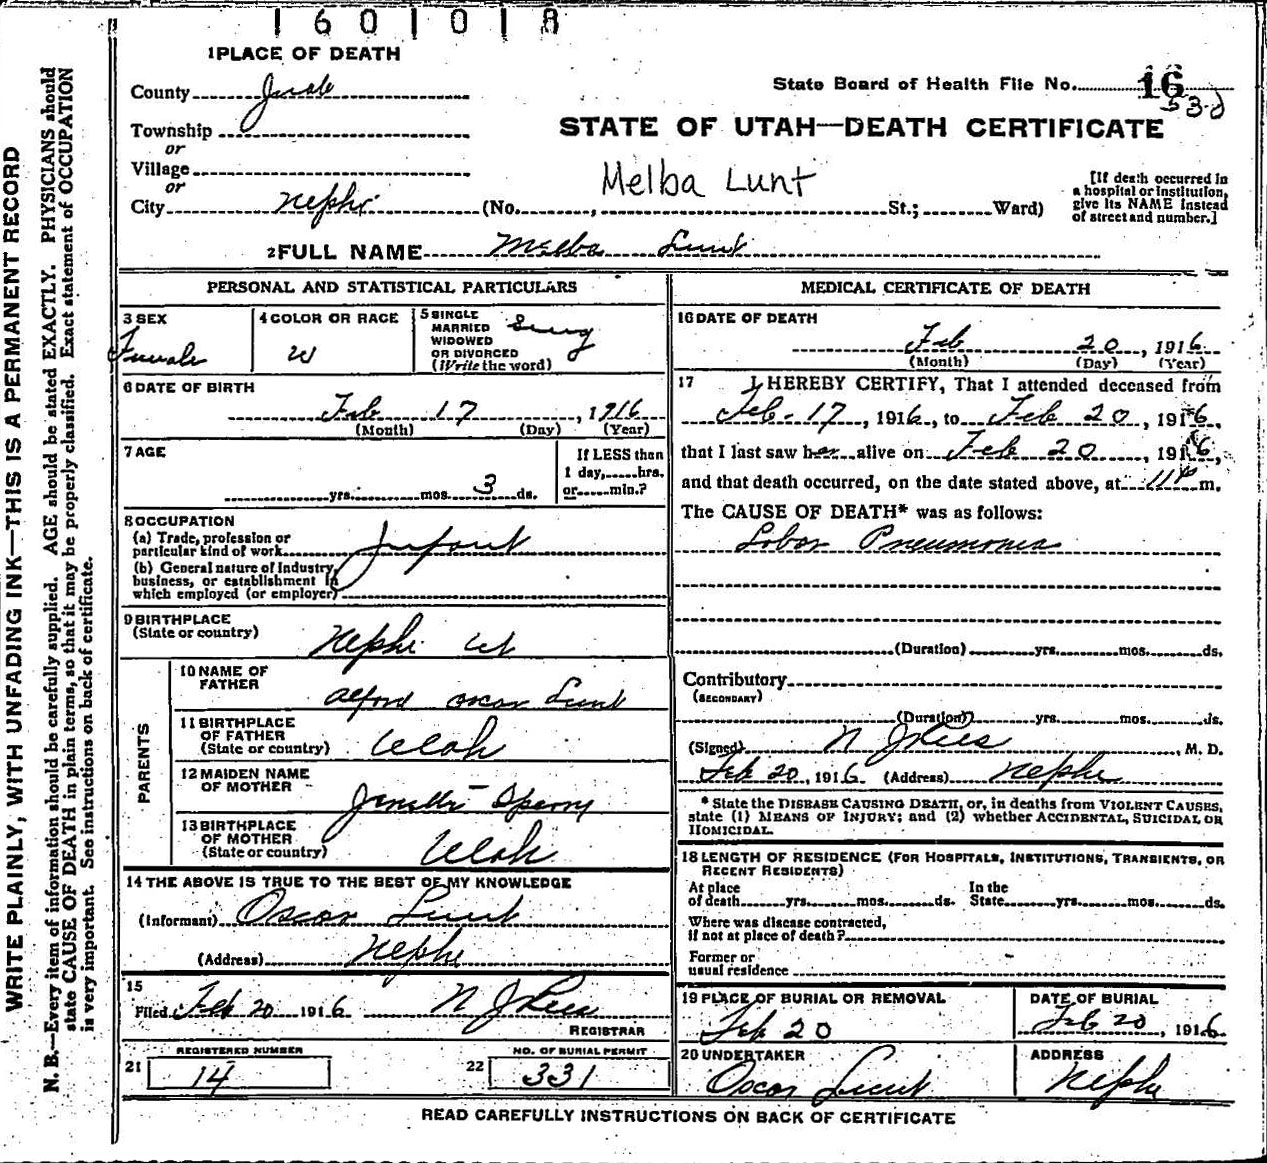 1601018
1 PLACE OF DEATH
County Juab
State Board of Health File No. 16
530
Township
or
STATE OF UTAH—DEATH CERTIFICATE
Village
or
Melba Lunt
[If death occurred in
a hospital or institution,
give its NAME instead
of street and number.]
City Nephi (No. , St.; Ward)
2 FULL NAME Melba Lunt
PERSONAL AND STATISTICAL PARTICULARS
3 SEX Female
4 COLOR OR RACE W
5 SINGLE
MARRIED
WIDOWED
OR DIVORCED
(Write the word) Sing
6 DATE OF BIRTH
Feb 17, 1916
(Month) (Day) (Year)
7 AGE
yrs. mos. 3 ds.
If LESS than
1 day, hrs.
or min.?
8 OCCUPATION
(a) Trade, profession or
particular kind of work Infant
(b) General nature of Industry,
business, or establishment in
which employed (or employer)
9 BIRTHPLACE
(State or country) Nephi Ut
PARENTS
10 NAME OF
FATHER Alford Oscar Lunt
11 BIRTHPLACE
OF FATHER
(State or country) Utah
12 MAIDEN NAME
OF MOTHER Jenette Sperry
13 BIRTHPLACE
OF MOTHER
(State or country) Utah
14 THE ABOVE IS TRUE TO THE BEST OF MY KNOWLEDGE
(Informant) Oscar Lunt
(Address) Nephi
15
Filed Feb 20 1916 N J Rees
REGISTRAR
REGISTERED NUMBER
21 14
NO. OF BURIAL PERMIT
22 331
MEDICAL CERTIFICATE OF DEATH
16 DATE OF DEATH
Feb 20, 1916
(Month) (Day) (Year)
17 I HEREBY CERTIFY, That I attended deceased from
Feb-17, 1916, to Feb 20, 1916,
that I last saw her alive on Feb 20, 1916,
and that death occurred, on the date stated above, at 11 P m.
The CAUSE OF DEATH* was as follows:
Lobar Pneumonia
(Duration) yrs. mos. ds.
Contributory
(SECONDARY)
(Duration) yrs. mos. ds.
(Signed) N J Rees, M. D.
Feb 20, 1916 (Address) Nephi
* State the DISEASE CAUSING DEATH, or, in deaths from VIOLENT CAUSES,
state (1) MEANS OF INJURY; and (2) whether ACCIDENTAL, SUICIDAL OR
HOMICIDAL.
18 LENGTH OF RESIDENCE (FOR HOSPITALS, INSTITUTIONS, TRANSIENTS, OR
RECENT RESIDENTS)
At place
of death yrs. mos. ds.
In the
State yrs. mos. ds.
Where was disease contracted,
if not at place of death?
Former or
usual residence
19 PLACE OF BURIAL OR REMOVAL
Feb 20
DATE OF BURIAL
Feb 20, 1916
20 UNDERTAKER
Oscar Lunt
ADDRESS
Nephi
READ CAREFULLY INSTRUCTIONS ON BACK OF CERTIFICATE
WRITE PLAINLY, WITH UNFADING INK—THIS IS A PERMANENT RECORD
N. B.—Every item of information should be carefully supplied. AGE should be stated EXACTLY. PHYSICIANS should
state CAUSE OF DEATH in plain terms, so that it may be properly classified. Exact statement of OCCUPATION
is very important. See instructions on back of certificate.